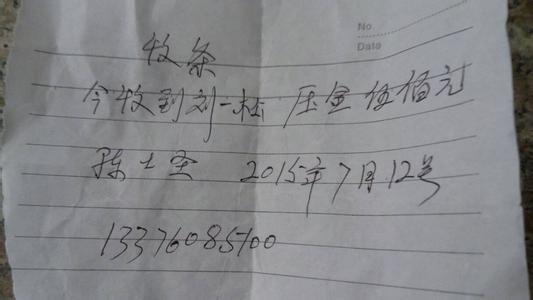 No
Date
收条
今收到刘一松 压金伍佰元
陈士至 2015年7月12号
13376085700